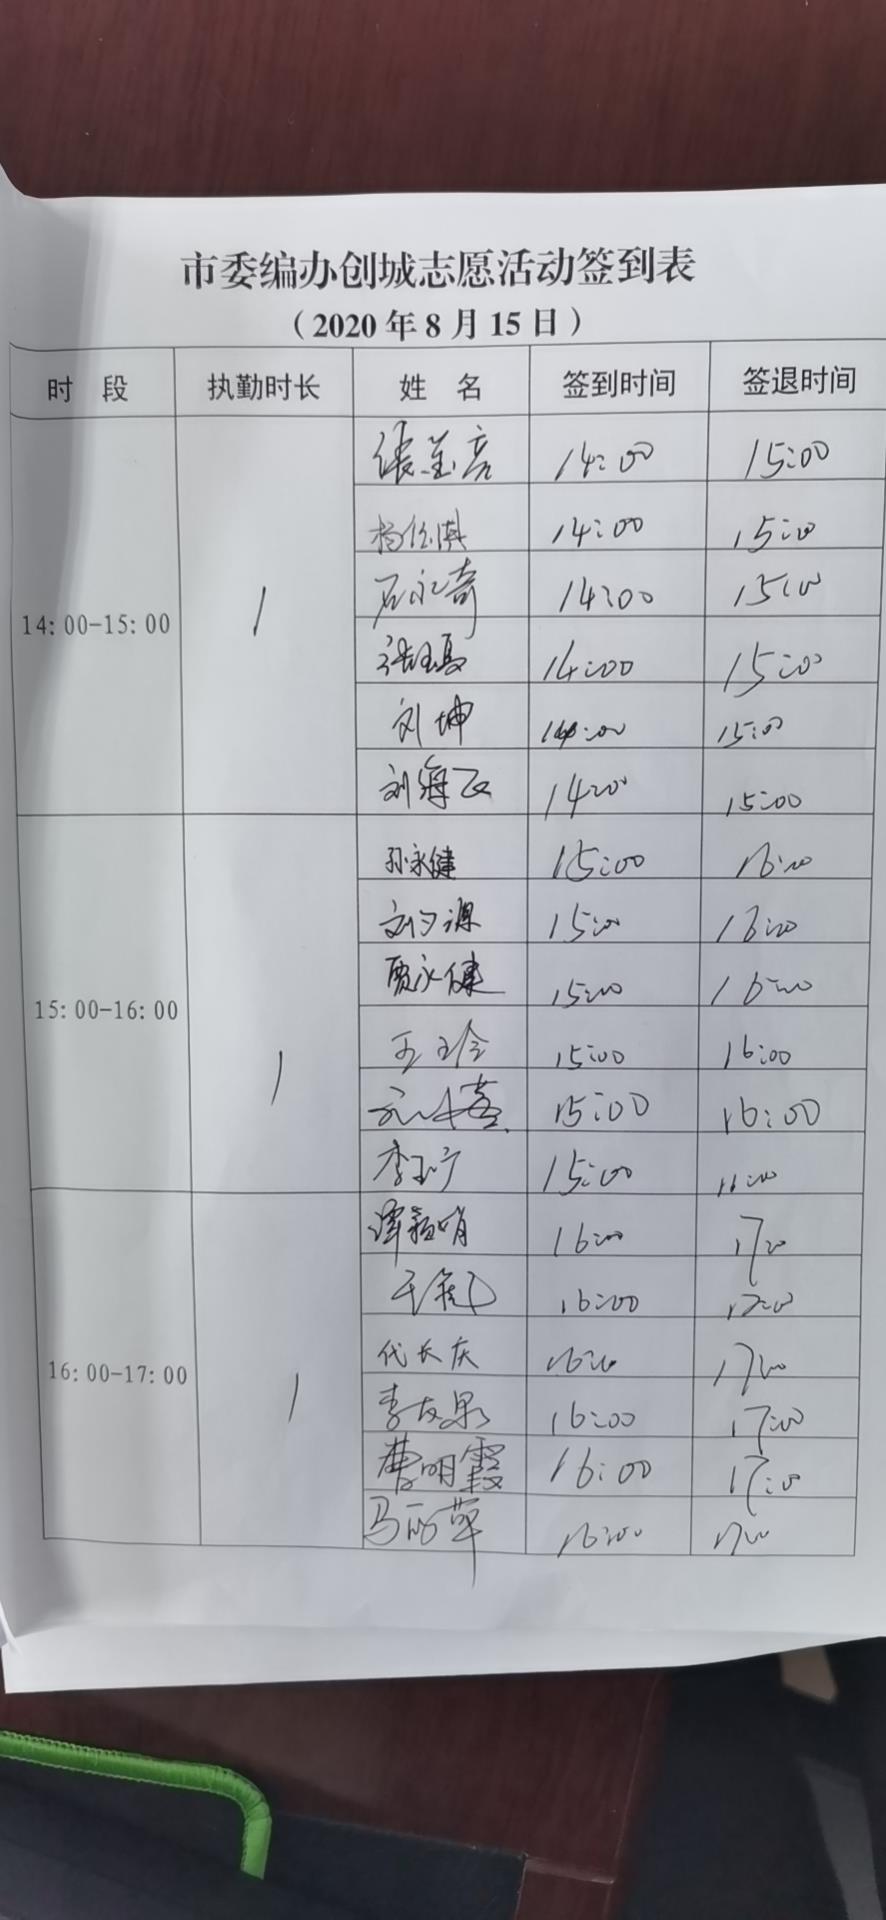 市委编办创城志愿活动签到表
（2020年8月15日）
时 段 执勤时长 姓 名 签到时间 签退时间
14:00-15:00 1
14:00 15:00
14:00 15:00
石永奇 14:00 15:00
14:00 15:00
刘坤 14:00 15:00
刘海飞 14:00 15:00
15:00-16:00 1
孙永健 15:00 16:00
15:00 16:00
贾永健 15:00 16:00
王玲 15:00 16:00
15:00 16:00
李 15:00 16:00
16:00-17:00 1
谭 16:00 17:00
16:00 17:00
代长庆 16:00 17:00
李友泉 16:00 17:00
曹明霞 16:00 17:00
马丽萍 16:00 17:00